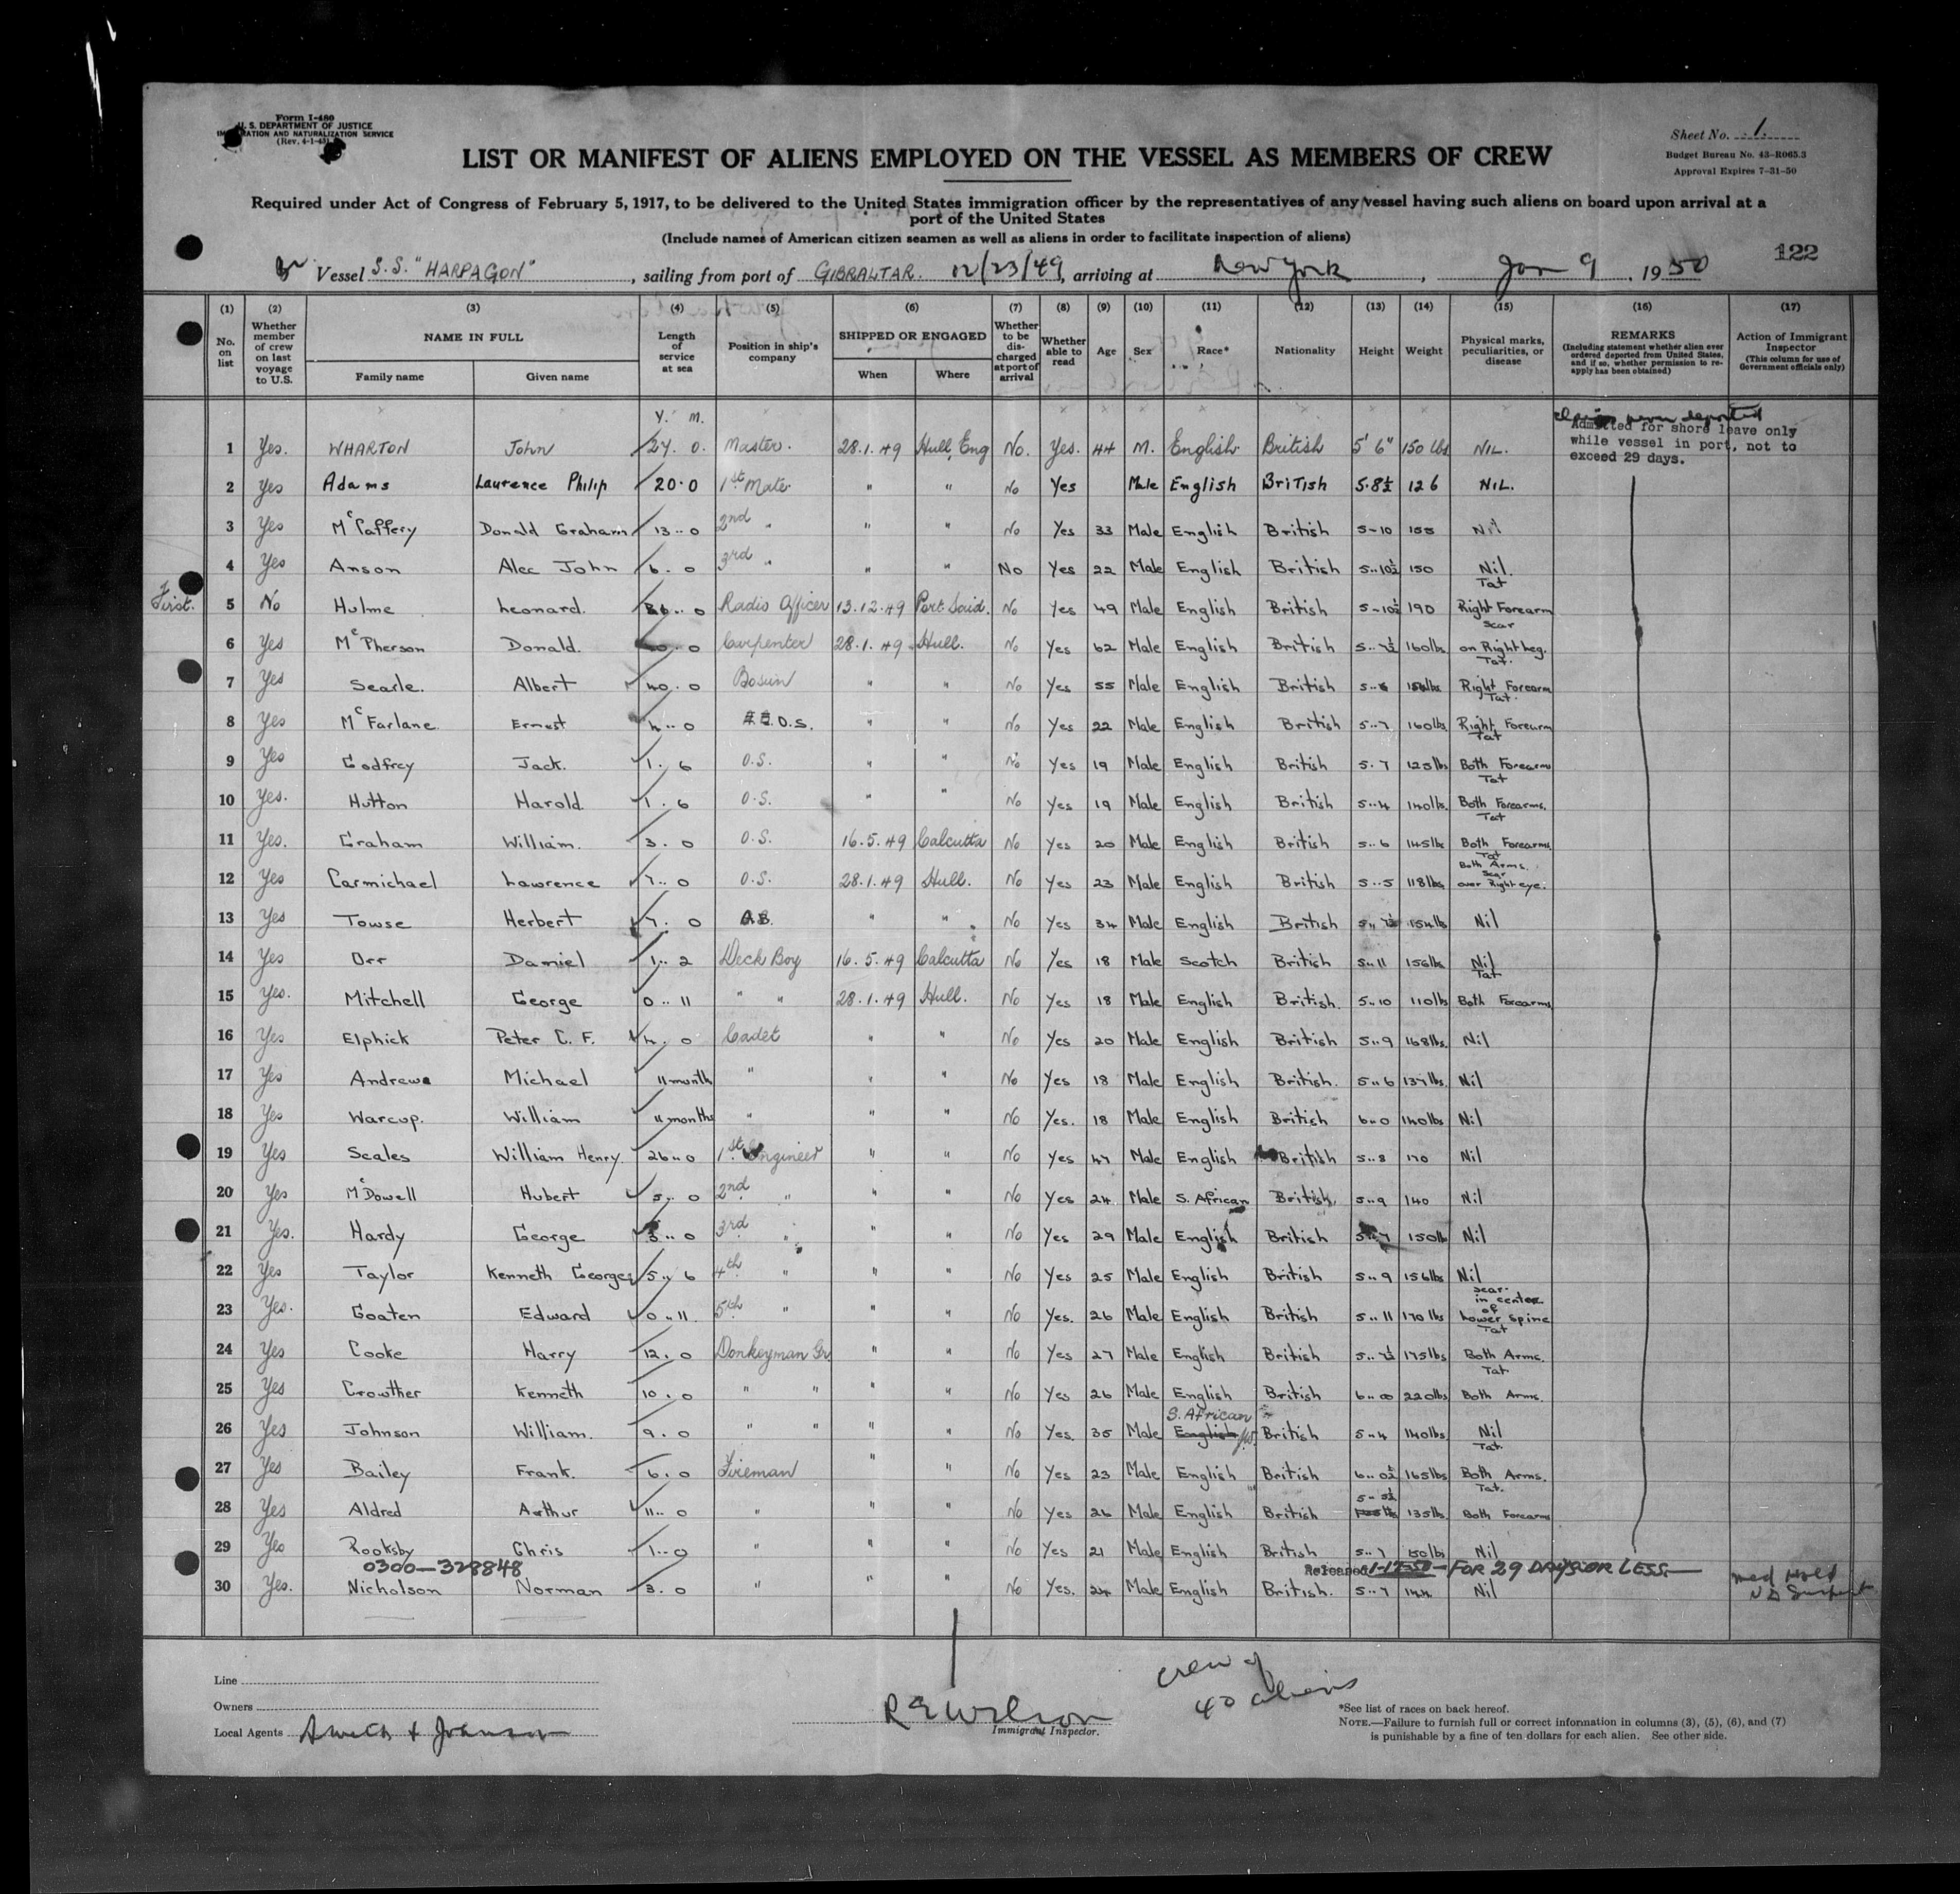 Form I-480
U. S. DEPARTMENT OF JUSTICE
IMMIGRATION AND NATURALIZATION SERVICE
(Rev. 4-1-43)
Sheet No. 1.
Budget Bureau No. 43-R065.3
Approval Expires 7-31-50
LIST OR MANIFEST OF ALIENS EMPLOYED ON THE VESSEL AS MEMBERS OF CREW
Required under Act of Congress of February 5, 1917, to be delivered to the United States immigration officer by the representatives of any vessel having such aliens on board upon arrival at a
port of the United States
(Include names of American citizen seamen as well as aliens in order to facilitate inspection of aliens)
122
Br Vessel S.S. "HARPAGON", sailing from port of GIBRALTAR. 12/23/49, arriving at New York, Jan 9, 1950
(1) (2) (3) (4) (5) (6) (7) (8) (9) (10) (11) (12) (13) (14) (15) (16) (17)
No. on list
Whether member of crew on last voyage to U.S.
NAME IN FULL
Family name
Given name
Length of service at sea
Position in ship's company
SHIPPED OR ENGAGED
When
Where
Whether to be discharged at port of arrival
Whether able to read
Age
Sex
Race*
Nationality
Height
Weight
Physical marks, peculiarities, or disease
REMARKS
(Including statement whether alien ever ordered deported from United States, and if so, whether permission to reapply has been obtained)
Action of Immigrant Inspector
(This column for use of Government officials only)
Y. M.
never deported
Admitted for shore leave only
while vessel in port, not to
exceed 29 days.
1 Yes. WHARTON John 27. 0. Master. 28.1.49 Hull, Eng No. Yes. 44 M. English British 5' 6" 150 lbs NIL.
2 Yes Adams Laurence Philip 20.0 1st Mate " " No Yes Male English British 5.8½ 126 NIL.
3 Yes McCaffery Donald Graham 13..0 2nd " " " No Yes 33 Male English British 5-10 155 Nil
4 Yes Anson Alec John 6.0 3rd " " " No Yes 22 Male English British 5..10½ 150 Nil.
First. 5 No Hulme Leonard. 26..0 Radio Officer 13.12.49 Port Said. No Yes 49 Male English British 5-10½ 190 Tat Right Forearm
6 Yes McPherson Donald. 0 Carpenter 28.1.49 Hull. No Yes 62 Male English British 5..7½ 160lbs Scar on Right Leg.
7 Yes Searle. Albert 40.0 Bosun " " No Yes 55 Male English British 5..6 lbs Tat. Right Forearm
8 Yes McFarlane. Ernest 4..0 O.S. " " No Yes 22 Male English British 5..7 160lbs Tat. Right Forearm
9 Yes Godfrey Jack. 1.6 O.S. " " No Yes 19 Male English British 5.7 125lbs Tat Both Forearms
10 Yes. Hutton Harold. 1.6 O.S. " " No Yes 19 Male English British 5..4 140lbs. Tat Both Forearms.
11 Yes. Graham William. 3.0 O.S. 16.5.49 Calcutta No Yes 20 Male English British 5..6 145lbs Tat Both Forearms.
12 Yes Carmichael Lawrence 7..0 O.S. 28.1.49 Hull. No Yes 23 Male English British 5..5 118lbs Tat Both Arms. Scar over Right eye.
13 Yes Towse Herbert 7.0 A.B. " " No Yes 34 Male English British 5..7½ 154lb Nil
14 Yes Orr Daniel 1..2 Deck Boy 16.5.49 Calcutta No Yes 18 Male Scotch British 5..11 156lbs Nil
15 Yes. Mitchell George 0..11 " " 28.1.49 Hull. No Yes 18 Male English British. 5..10 110lbs Tat Both Forearms
16 Yes Elphick Peter C. F. 4.0 Cadet " " No Yes 20 Male English British 5..9 168lbs. Nil
17 Yes Andrews Michael 11 months " " " No Yes 18 Male English British. 5..6 137lbs. Nil
18 Yes Warcup. William 11 months " " " No Yes. 18 Male English British 6..0 140lbs Nil
19 Yes Scales William Henry. 26..0 1st Engineer " " No Yes 47 Male English British 5..8 170 Nil
20 Yes McDowell Hubert 5..0 2nd " " " No Yes 24 Male S. African British 5..9 140 Nil
21 Yes. Hardy George 3..0 3rd " " " No Yes 29 Male English British 5..7 150lb Nil
22 Yes Taylor Kenneth George 5..6 4th " " " No Yes 25 Male English British 5..9 156lbs Nil
23 Yes. Goaten Edward 0..11. 5th " " " No Yes. 26 Male English British 5..11 170 lbs Scar in center of Lower Spine
24 Yes Cooke Harry 12.0 Donkeyman Gr. " " No Yes 27 Male English British 5..7½ 175lbs Tat Both Arms.
25 Yes Crowther Kenneth 10.0 " " " " No Yes 26 Male English British 6..00 220lbs Tat Both Arms.
26 Yes Johnson William. 9.0 " " " " No Yes. 35 Male S. African English British 5..4 140lbs Nil
27 Yes Bailey Frank. 6.0 Fireman " " No Yes 23 Male English British 6..0½ 165lbs Tat. Both Arms.
28 Yes Aldred Arthur 11..0 " " " No Yes 26 Male English British 5..5½ 135lbs Tat. Both Forearms
29 Yes Rooksby Chris 1..0 " " " No Yes 21 Male English British 5..7 150lbs Nil
0300-328848 Released 1-17-50-FOR 29 DAYS OR LESS
30 Yes. Nicholson Norman 3.0 " " " No Yes. 24 Male English British. 5..7 144 Nil Med Hold
Line
Owners
Local Agents
R E Wilson
Immigrant Inspector.
crew of
40 aliens
*See list of races on back hereof.
NOTE.—Failure to furnish full or correct information in columns (3), (5), (6), and (7)
is punishable by a fine of ten dollars for each alien. See other side.